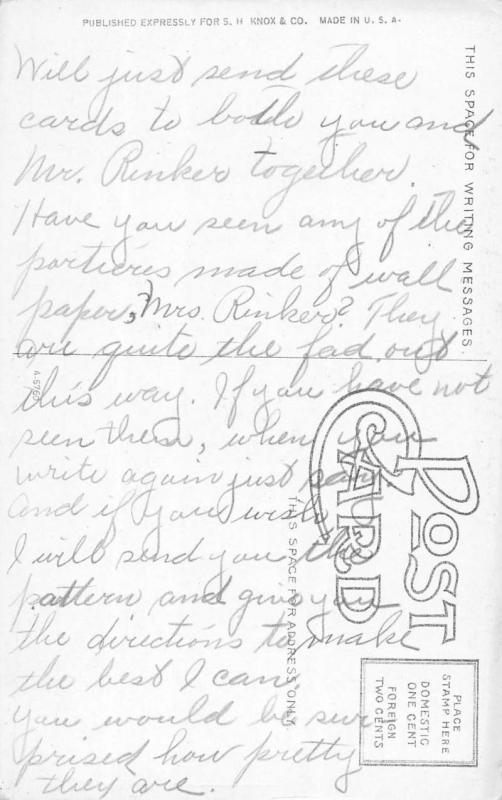 PUBLISHED EXPRESSLY FOR S. H KNOX & CO. MADE IN U. S. A.
Will just send these
cards to both you and
Mr. Rinker together.
Have you seen any of the
portieres made of wall
paper, Mrs. Rinker? They
are quite the fad out
this way. If you have not
seen them, when you
write again just say
and if you wish
I will send you the
pattern and give you
the directions to make
the best I can.
You would be sur
prised how pretty
they are.
THIS SPACE FOR WRITING MESSAGES.
A-5760
POST
CARD
THIS SPACE FOR ADDRESS ONLY.
PLACE
STAMP HERE
DOMESTIC
ONE CENT
FOREIGN
TWO CENTS